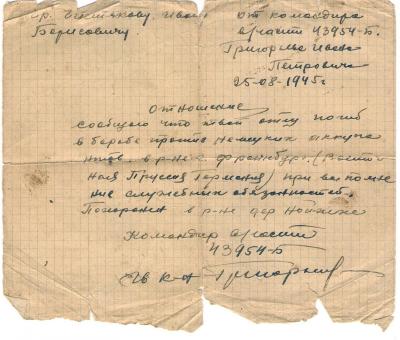 гр. Ивану Борисовичу.
от командира
в/части 43954-Б.
Григорьева Ивана
Петровича
25-08-1945г
Отношение
сообщаю что твой отец погиб
в борьбе против немецких оккупа
нтов. в р-не г (Восточ
ная Пруссия Германия) при выполне
ние служебных обязаностей.
Похоронен в р-не дер
Командир в/части
43954-Б
Гв к-н Григорьев